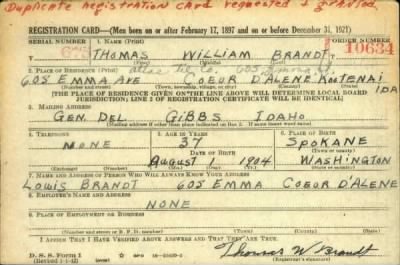 Duplicate Registration Card requested & granted.
REGISTRATION CARD—(Men born on or after February 17, 1897 and on or before December 31, 1921)
SERIAL NUMBER 1. NAME (Print) ORDER NUMBER
THOMAS WILLIAM BRANDT 10634
2. PLACE OF RESIDENCE (Print)
605 EMMA AVE COEUR D'ALENE KOOTENAI IDA
[THE PLACE OF RESIDENCE GIVEN ON THE LINE ABOVE WILL DETERMINE LOCAL BOARD
JURISDICTION; LINE 2 OF REGISTRATION CERTIFICATE WILL BE IDENTICAL]
3. MAILING ADDRESS
GEN. DEL GIBBS IDAHO
[Mailing address if other than place indicated on line 2. If same insert word same]
4. TELEPHONE 5. AGE IN YEARS 6. PLACE OF BIRTH
NONE 37 SPOKANE
DATE OF BIRTH (Town or county)
AUGUST 1 1904 WASHINGTON
(Exchange) (Number) (Mo.) (Day) (Yr.) (State or country)
7. NAME AND ADDRESS OF PERSON WHO WILL ALWAYS KNOW YOUR ADDRESS
LOUIS BRANDT 605 EMMA COEUR D'ALENE
8. EMPLOYER'S NAME AND ADDRESS
NONE
9. PLACE OF EMPLOYMENT OR BUSINESS
(Number and street or R. F. D. number) (Town) (County) (State)
I AFFIRM THAT I HAVE VERIFIED ABOVE ANSWERS AND THAT THEY ARE TRUE.
D. S. S. Form 1
(Revised 1-1-42) GPO
Thomas W Brandt